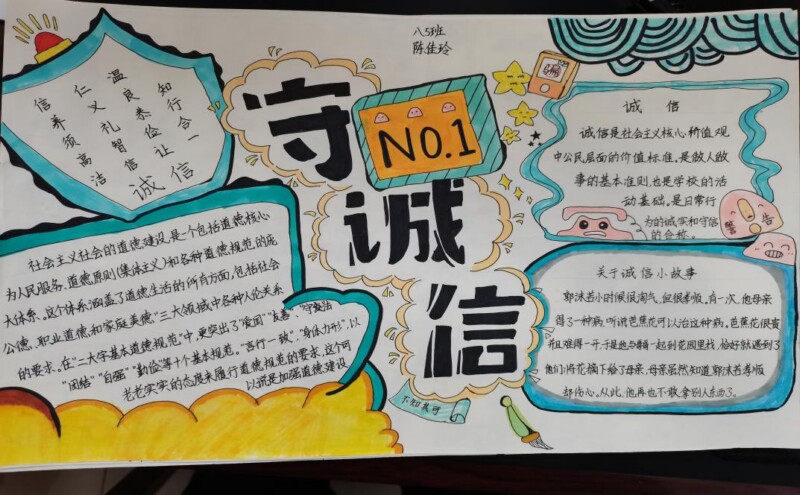 八5班
陈佳玲
信养须高洁
仁义礼智信
温良恭俭让
知行合一
诚信
守
NO.1
诚
信
诚 信
诚信是社会主义核心价值观
中公民层面的价值标准,是做人做
事的基本准则,也是学校的活
动基础。是日常行
为的诚实和守信
的合称。
警告
社会主义社会的道德建设,是一个包括道德核心
为人民服务,道德原则(集体主义)和各种道德规范的庞
大体系。这个体系涵盖了道德生活的所有方面,包括社会
公德,职业道德和家庭美德“三大领域中各种人伦关系
的要求。在“二大字基本道德规范”中,更突出了“爱国”“友善”“守法
“团结”“自强”“勤俭”等十个基本规范。“言行一致”,“身体力行”,以
老老实实的态度来履行道德规范的要求,这个可
以说是加强道德建设
关于诚信小故事
郭沫若小时候很淘气,但很孝顺。有一次,他母亲
得了一种病,听说芭蕉花可以治这种病。芭蕉花很贵
并且难得一开,于是他与哥哥一起到花园里找,恰好就遇到了
他们将花摘下给了母亲,母亲虽然知道郭沫若孝顺
却伤心。从此,他再也不敢拿别人东西了。